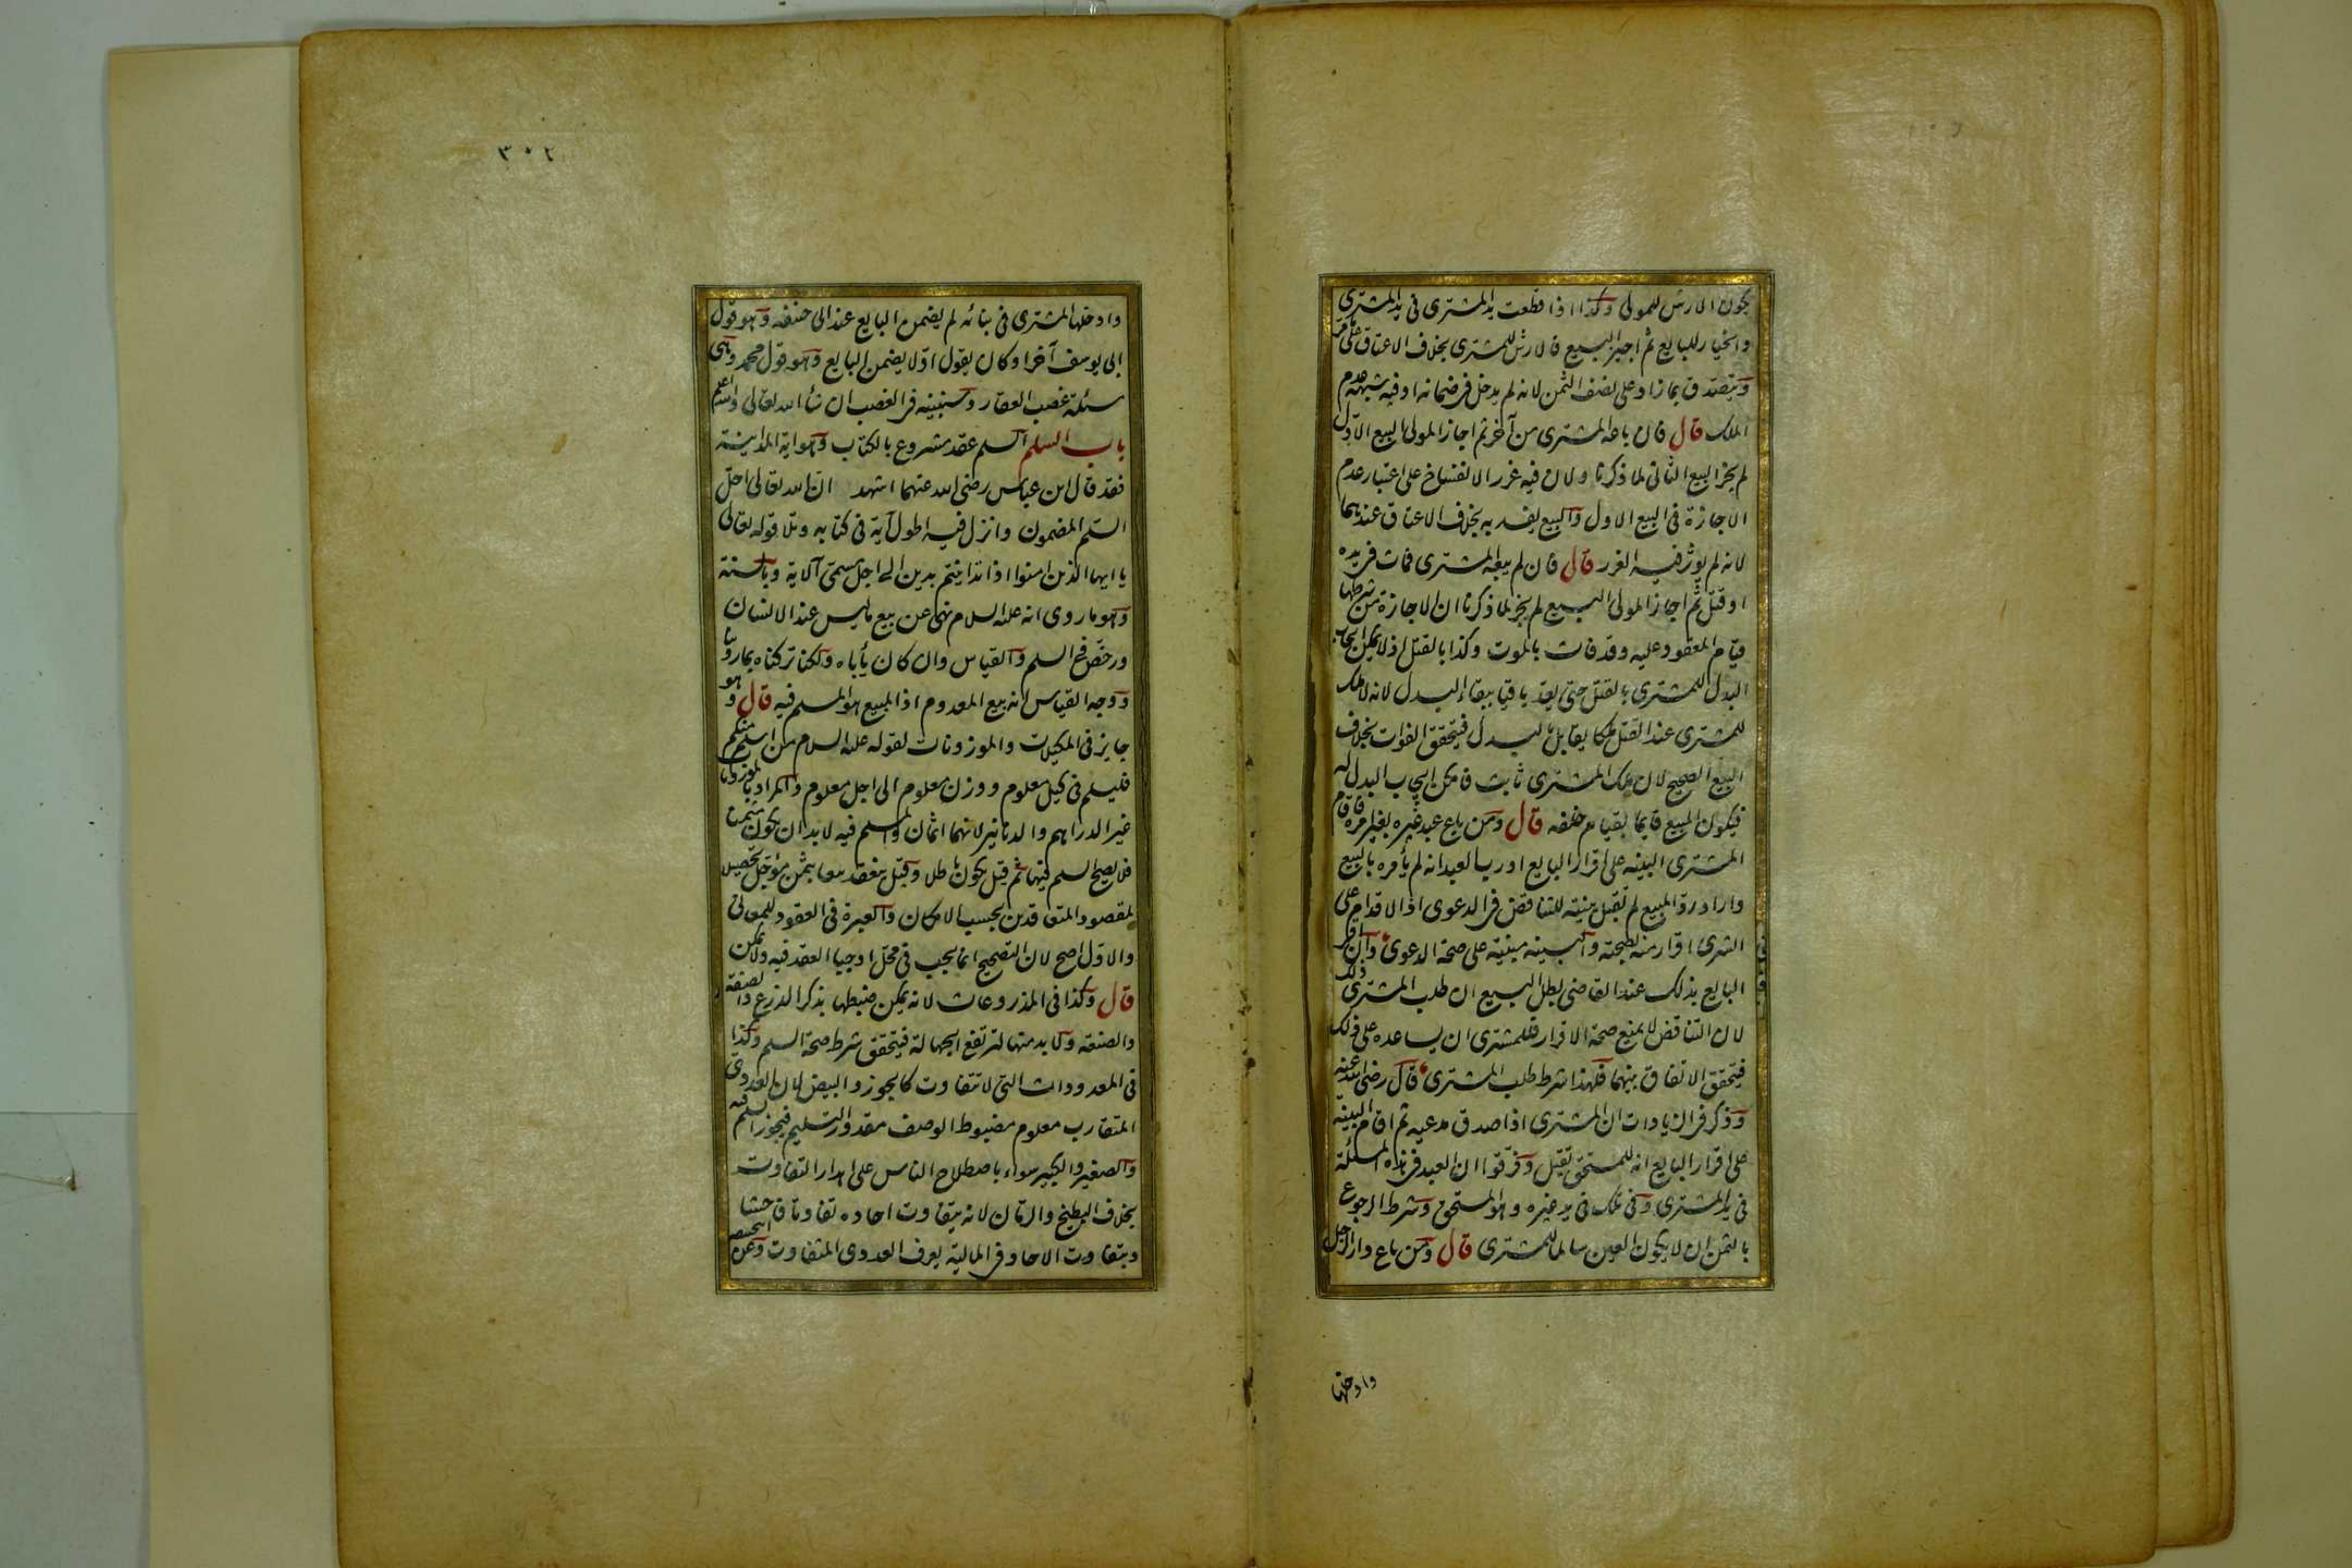 يكون الارش للمولى وكذا اذا قطعت يد المشترى فى يد المشترى
والخيار للبايع ثم اجيز البيع فالارش للمشترى بخلاف الاعتاق على ما مر
ويتصدق بما زاد على نصف الثمن لانه لم يدخل فى ضمانه او فيه شبهة عدم
الملك قال فان باعه المشترى من آخر ثم اجاز المولى البيع الاول
لم يجز البيع الثانى لما ذكرنا ولان فيه غرر الانفساخ على اعتبار عدم
الاجازة فى البيع الاول والبيع يفسد به بخلاف الاعتاق عندهما
لانه لم يؤثر فيه الغرر قال فان لم يبعه المشترى فمات فى يده
او قتل ثم اجاز المولى البيع لم يجز لما ذكرنا ان الاجازة من شرطها
قيام المعقود عليه وقد فات بالموت وكذا بالقتل اذ لا يمكن ايجاب
البدل للمشترى بالقتل حتى يعد باقيا ببقاء البدل لانه لا ملك
للمشترى عند القتل ملكا يقابل بالبدل فيتحقق الفوات بخلاف
البيع الصحيح لان ملك المشترى ثابت فامكن ايجاب البدل له
فيكون المبيع قايما بقيام خلفه قال ومن باع عبد غيره بغير امره فاقام
المشترى البينه على اقرار البايع او رب العبد انه لم يأمره بالبيع
واراد رد المبيع لم تقبل بينته للتناقض فى الدعوى اذ الاقدام على
الشرى اقرار منه بصحته والبينه مبنية على صحة الدعوى وان اقر
البايع بذلك عند القاضى بطل البيع ان طلب المشترى ذلك
لان التناقض لا يمنع صحة الاقرار فللمشترى ان يساعده على ذلك
فيتحقق الاتفاق بينهما فلهذا شرط طلب المشترى قال رضى الله عنه
وذكر فى الزيادات ان المشترى اذا صدق مدعيه ثم اقام البينة
على اقرار البايع انه للمستحق تقبل وفرقوا ان العبد فى هذه المسئلة
فى يد المشترى وفى تلك فى يد غيره وهو المستحق وشرط الرجوع
بالثمن ان لا يكون العين سالما للمشترى قال ومن باع دارا لرجل
وادخلها
٣٠٢
وادخلها المشترى فى بنائه لم يضمن البايع عند ابى حنيفه وهو قول
ابى يوسف آخرا وكان يقول اولا يضمن البايع وهو قول محمد وهى
مسئلة غصب العقار وسنبينه فى الغصب ان شأ الله تعالى والله اعلم
باب السلم السلم عقد مشروع بالكتاب وهو اية المداينة
فقد قال ابن عباس رضى الله عنهما اشهد ان الله تعالى احل
السلم المضمون وانزل فيه اطول آية فى كتابه وتلا قوله تعالى
يا ايها الذين امنوا اذا تداينتم بدين الى اجل مسمى آلاية وبالسنة
وهو ما روى انه عليه السلام نهى عن بيع ما ليس عند الانسان
ورخص فى السلم والقياس وان كان يأباه ولكنا تركناه بما روينا
ووجه القياس انه بيع المعدوم اذ المبيع هو المسلم فيه قال وهو
جايز فى المكيلات والموزونات لقوله عليه السلام من اسلم منكم
فليسلم فى كيل معلوم ووزن معلوم الى اجل معلوم والمراد بالموزونات
غير الدراهم والدنانير لانهما اثمان والمسلم فيه لا بد ان يكون مثمنا
فلا يصح السلم فيهما ثم قيل يكون باطلا وقيل ينعقد بيعا بثمن مؤجل تحصيلا
لمقصود المتعاقدين بحسب الامكان والعبرة فى العقود للمعانى
والاول اصح لان التصحيح انما يجب فى محل اوجبا العقد فيه ولا يمكن
قال وكذا فى المذروعات لانه يمكن ضبطها بذكر الذرع والصفة
والصنعة ولا بد منها لترتفع الجهالة فيتحقق شرط صحة السلم وكذا
فى المعدودات التى لا تتفاوت كالجوز والبيض لان العددى
المتقارب معلوم مضبوط الوصف مقدور التسليم فيجوز السلم فيه
والصغير والكبير سواء باصطلاح الناس على اهدار التفاوت
بخلاف البطيخ والرمان لانه يتفاوت احاده تفاوتا فاحشا
وبتفاوت الاحاد فى المالية يعرف العددى المتفاوت وعن ابى حنيفه